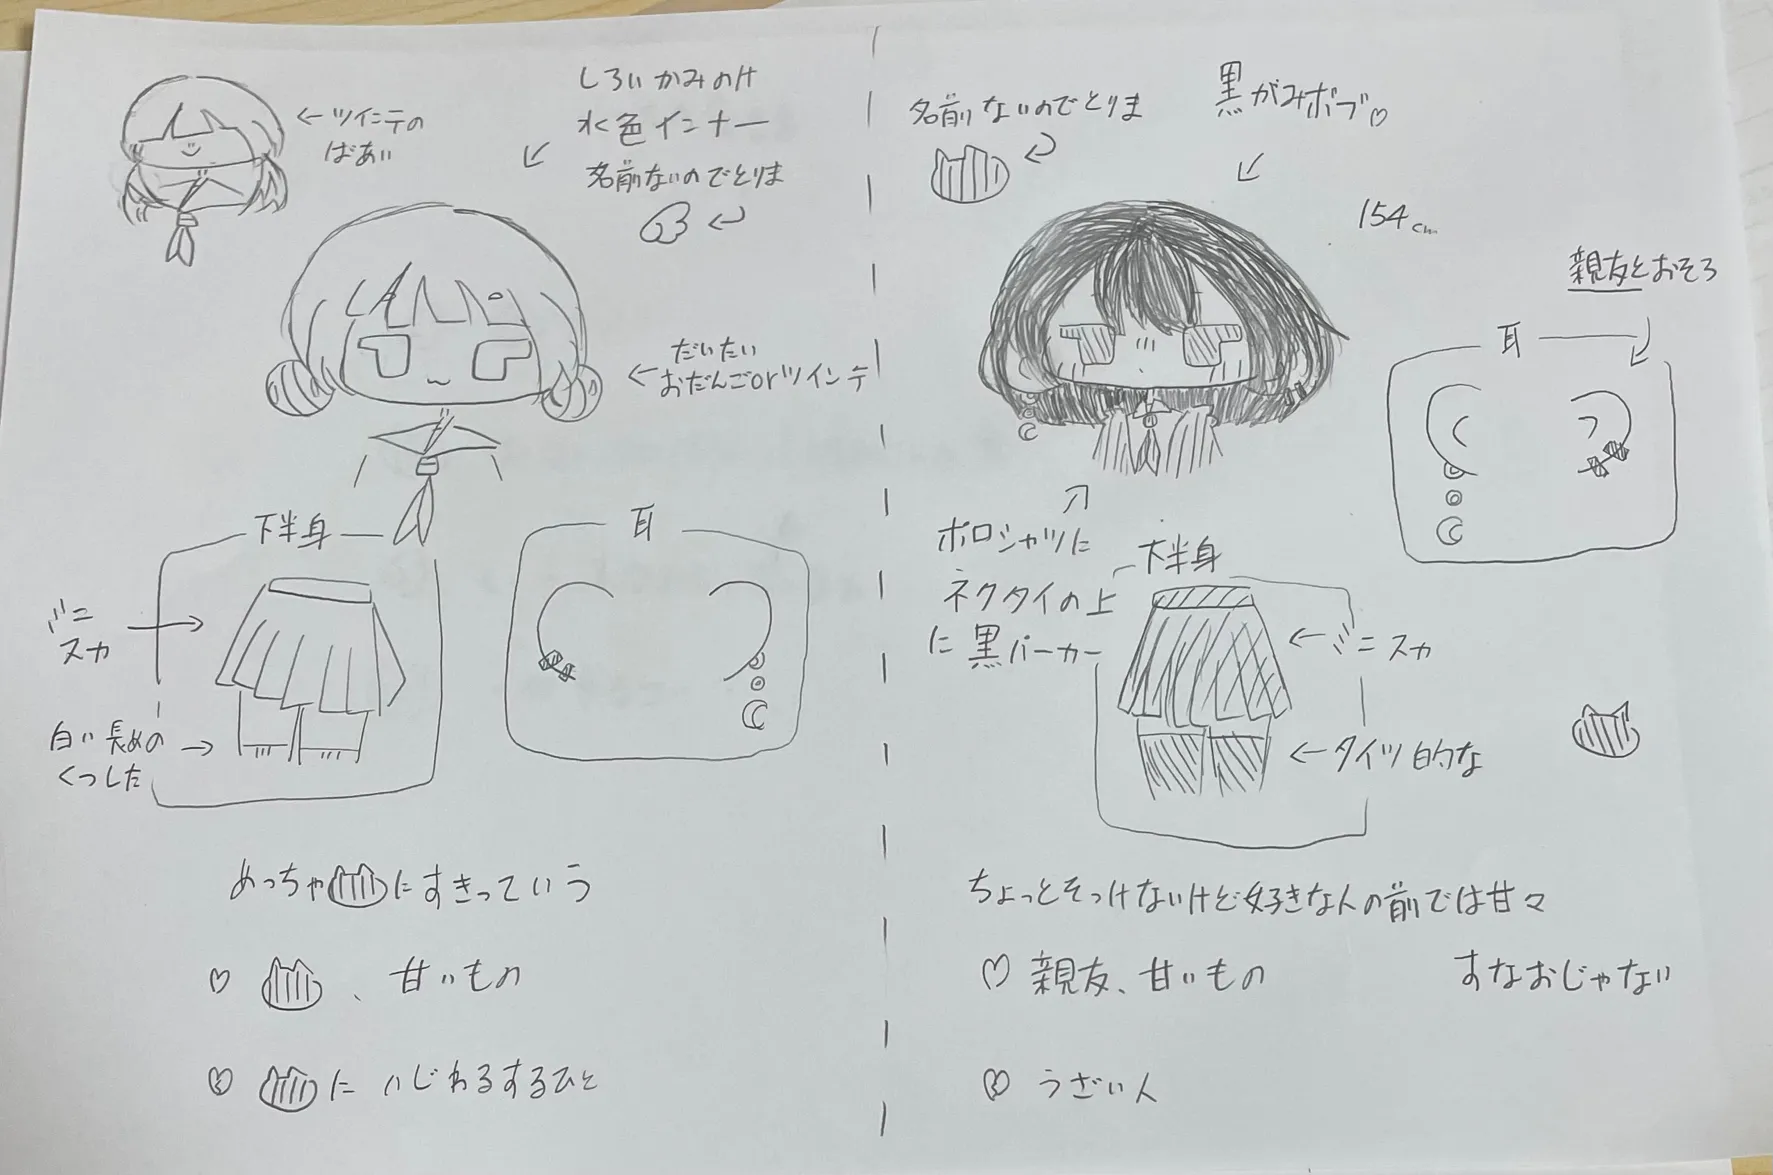 ←ツインテの
ばあい
しろいかみのけ
水色インナー
名前ないのでとりま
←だいたい
おだんごorツインテ
下半身
ミニ
スカ
白い長めの
くつした
耳
めっちゃにすきっていう
♡ 、甘いもの
にいじわるするひと
名前ないのでとりま
黒がみボブ♡
154cm
親友とおそろ
耳
ポロシャツに
ネクタイの上
に黒パーカー
下半身
←ミニスカ
←タイツ的な
ちょっとそっけないけど好きな人の前では甘々
♡ 親友、甘いもの
すなおじゃない
うざい人